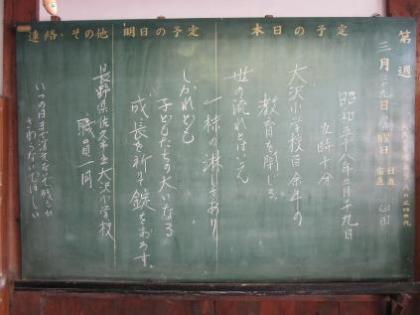 第　週
三月二十九日　曜日
日直
本日の予定
昭和五十八年三月二十九日
五時十分
大沢小学校百余年の
教育を閉じる
世の流れとはいえ
一抹の淋しさあり
明日の予定
しかれども
子どもたちの大いなる
成長を祈り錠をおろす。
連絡・その他
長野県佐久市立大沢小学校
職員一同
いつの日まで消さないで